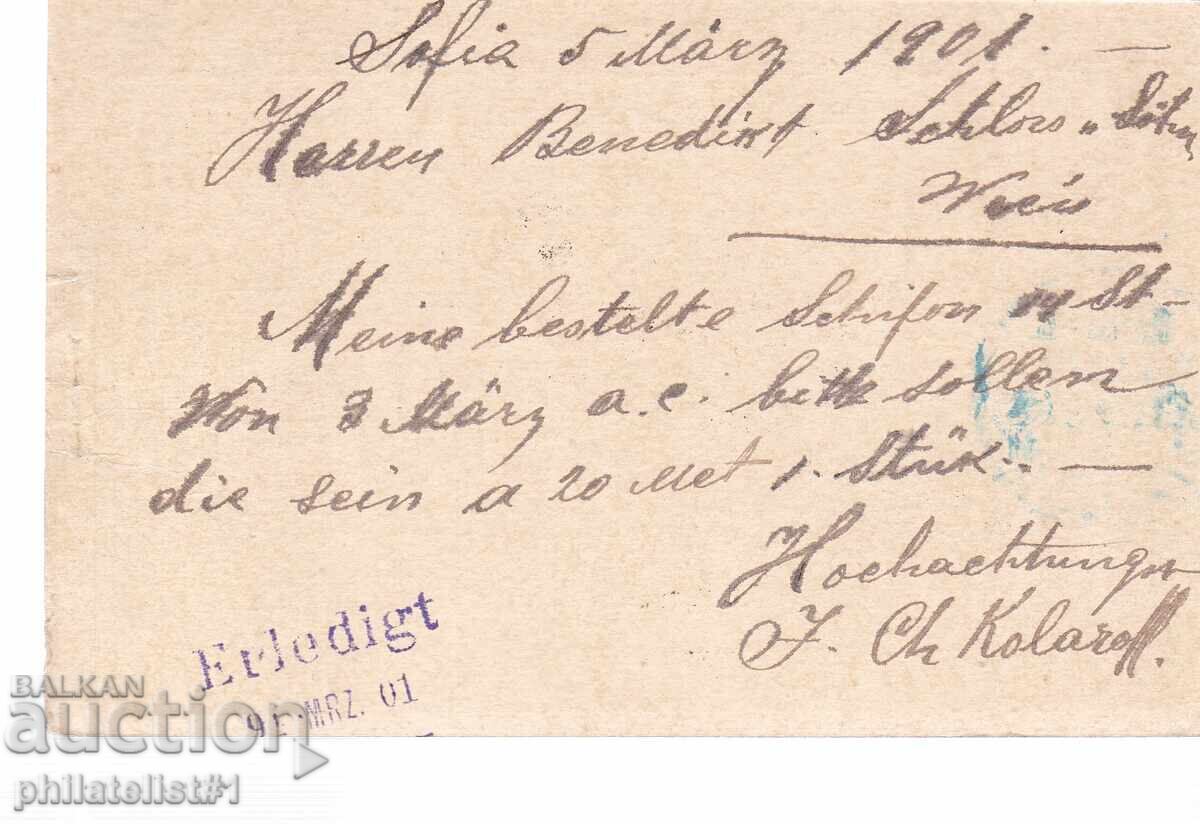 Sofia 5 März 1901. —
Herren Benedikt Schloss „ Söhne
Wien
Meine bestelte Schifon 14 St-
Von 3 März a.c. bitte sollem
die sein a 20 Met 1. Stük. —
Hochachtungs
J. Ch Kolaroff.
Erledigt
MRZ. 01
BALKAN
auction
philatelist#1